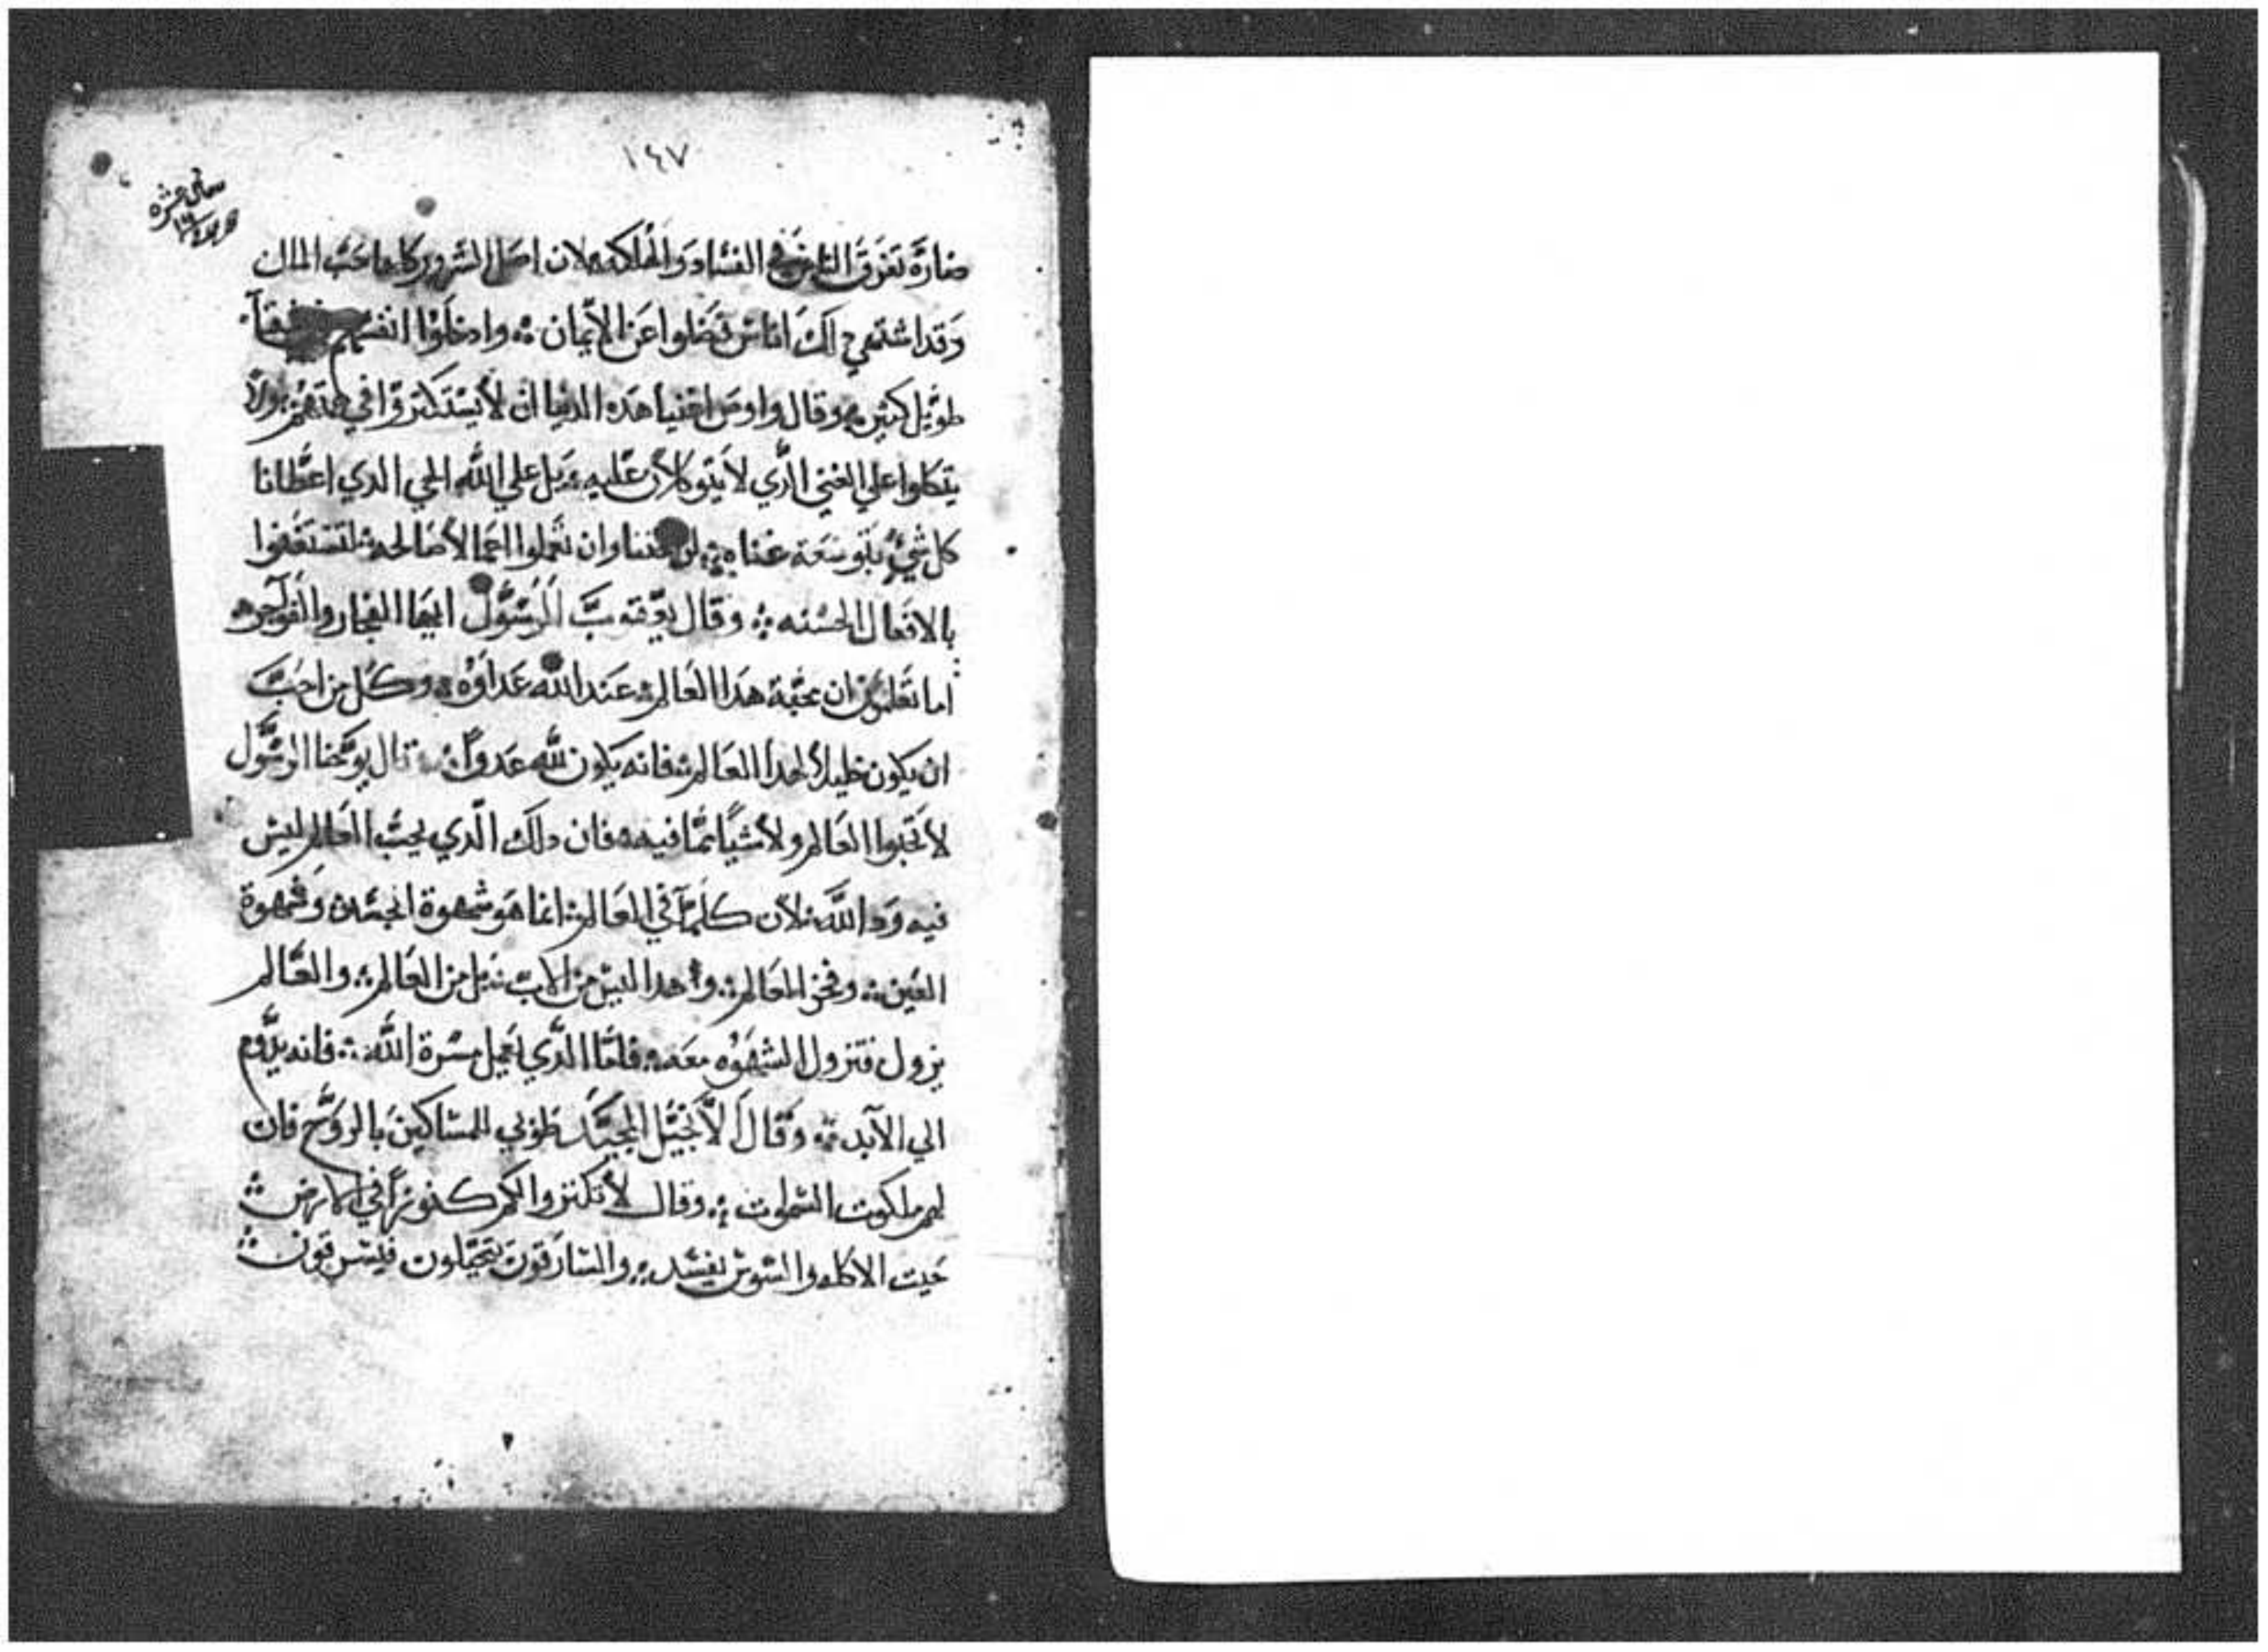 ١٤٧
ضارة تغرق الناس في الفساد والهلكه لان اصل الشرور كلها حب المال
وقد اشتهي دلك اناس فضلوا عن الايمان ܀ وادخلوا انفسهم
طويل كثير ܀ وقال واوص اغنيا هده الدنيا ان لا يستكبروا في ولا
يتكلوا علي الغني الدي لا يتوكلان عليه ܀ بل علي الله الحي الدي اعطانا
كل شي بتوسعة غناه ܀ وان تعملوا اعمالا صالحه
بالافعال الحسنه ܀ وقال الرسول ايها الفجار والفواجر
اما تعلمون ان محبة هدا العالم عند الله عداوه ܀ وكل من احب
ان يكون خليلا لهدا العالم فانه يكون لله عدوا ܀ قال يوحنا الرسول
لا تحبوا العالم ولا شيا مما فيه فان دلك الدي يحب العالم ليس
فيه ود الله لان كلما في العالم انما هو شهوة الجسد وشهوة
العين ܀ وفخر العالم ܀ وهدا ليس من الاب بل من العالم ܀ والعالم
يزول فتزول الشهوه معه ܀ فاما الدي يعمل مسرة الله ܀ فانه يدوم
الي الابد ܀ وقال الانجيل المجيد طوبي للمساكين بالروح فان
لهم ملكوت السموات ܀ وقال لا تكنزوا لكم كنوزا في الارض
حيت الاكله والسوس يفسد ܀ والسارقون يتحيلون فيسرقون